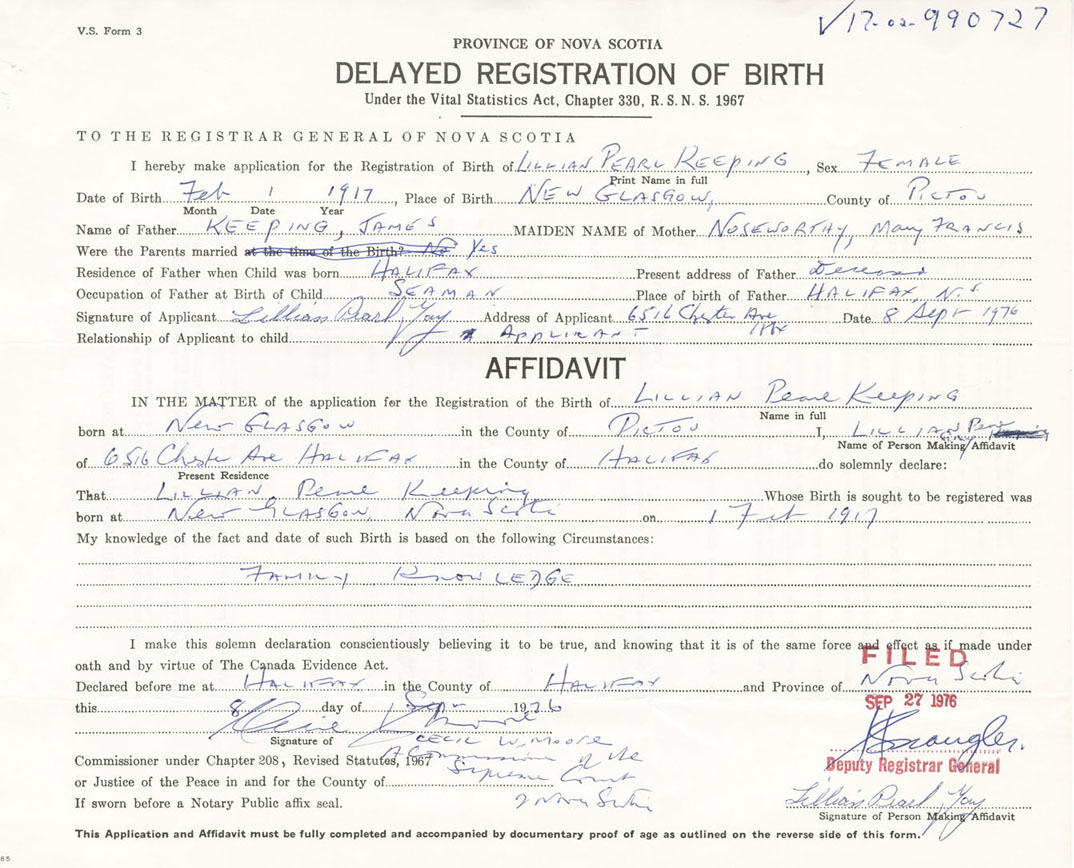 V.S. Form 3
√17-02-990727
PROVINCE OF NOVA SCOTIA
DELAYED REGISTRATION OF BIRTH
Under the Vital Statistics Act, Chapter 330, R. S. N. S. 1967
TO THE REGISTRAR GENERAL OF NOVA SCOTIA
I hereby make application for the Registration of Birth of LILLIAN PEARL KEEPING, Sex FEMALE
Print Name in full
Date of Birth Feb 1 1917, Place of Birth NEW GLASGOW, County of PICTOU
Month Date Year
Name of Father KEEPING, JAMES MAIDEN NAME of Mother NOSEWORTHY, Mary FRANCIS
Were the Parents married at the time of the Birth? No Yes
Residence of Father when Child was born HALIFAX Present address of Father Deceased
Occupation of Father at Birth of Child SEAMAN Place of birth of Father HALIFAX, N.S
Signature of Applicant Lillian Pearl Address of Applicant 6516 Chester Ave Hfx Date 8 Sept 1976
Relationship of Applicant to child APPLICANT
AFFIDAVIT
IN THE MATTER of the application for the Registration of the Birth of LILLIAN Pearl KEEPING
Name in full
born at New GLASGOW in the County of PICTOU I, LILLIAN Pearl
Name of Person Making Affidavit
of 6516 Chester Ave HALIFAX in the County of HALIFAX do solemnly declare:
Present Residence
That LILLIAN Pearl Keeping Whose Birth is sought to be registered was
born at New GLASGOW, Nova Scotia on 1 Feb 1917
My knowledge of the fact and date of such Birth is based on the following Circumstances:
FAMILY KNOWLEDGE
I make this solemn declaration conscientiously believing it to be true, and knowing that it is of the same force and effect as if made under
oath and by virtue of The Canada Evidence Act.
FILED
Declared before me at HALIFAX in the County of HALIFAX and Province of Nova Scotia
this 8 day of Sept 1976
SEP 27 1976
Signature of CECIL W. MOORE
Commissioner under Chapter 208, Revised Statutes, 1967 A Commission of the
or Justice of the Peace in and for the County of Supreme Court
Deputy Registrar General
If sworn before a Notary Public affix seal. of Nova Scotia
Lillian Pearl
Signature of Person Making Affidavit
This Application and Affidavit must be fully completed and accompanied by documentary proof of age as outlined on the reverse side of this form.
85